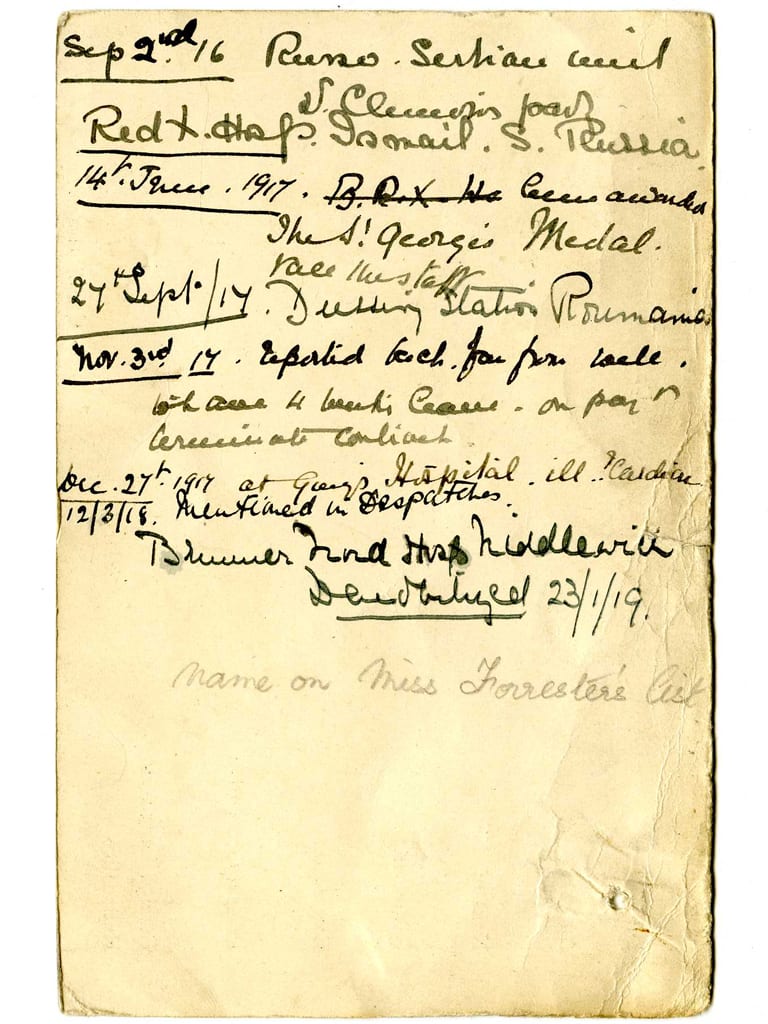 Sep 2nd. 16 Russo. Serbian unit
Red X. Hosp. Ismail. S. Russia
14th June. 1917. B.R.X. Ho been awarded
The St George's Medal.
27th Sept/17. Dressing Station Roumania
Nov. 3rd 17. reported back. far from well.
4 weeks leave. on pay
terminate contract.
Dec. 27th 1917 at Guy's Hospital. ill. ? Cardiac
12/3/18. Mentioned in Despatches.
Brunner Mond Hosp Middlewich
Demobilized 23/1/19.
Name on Miss Forrester's list